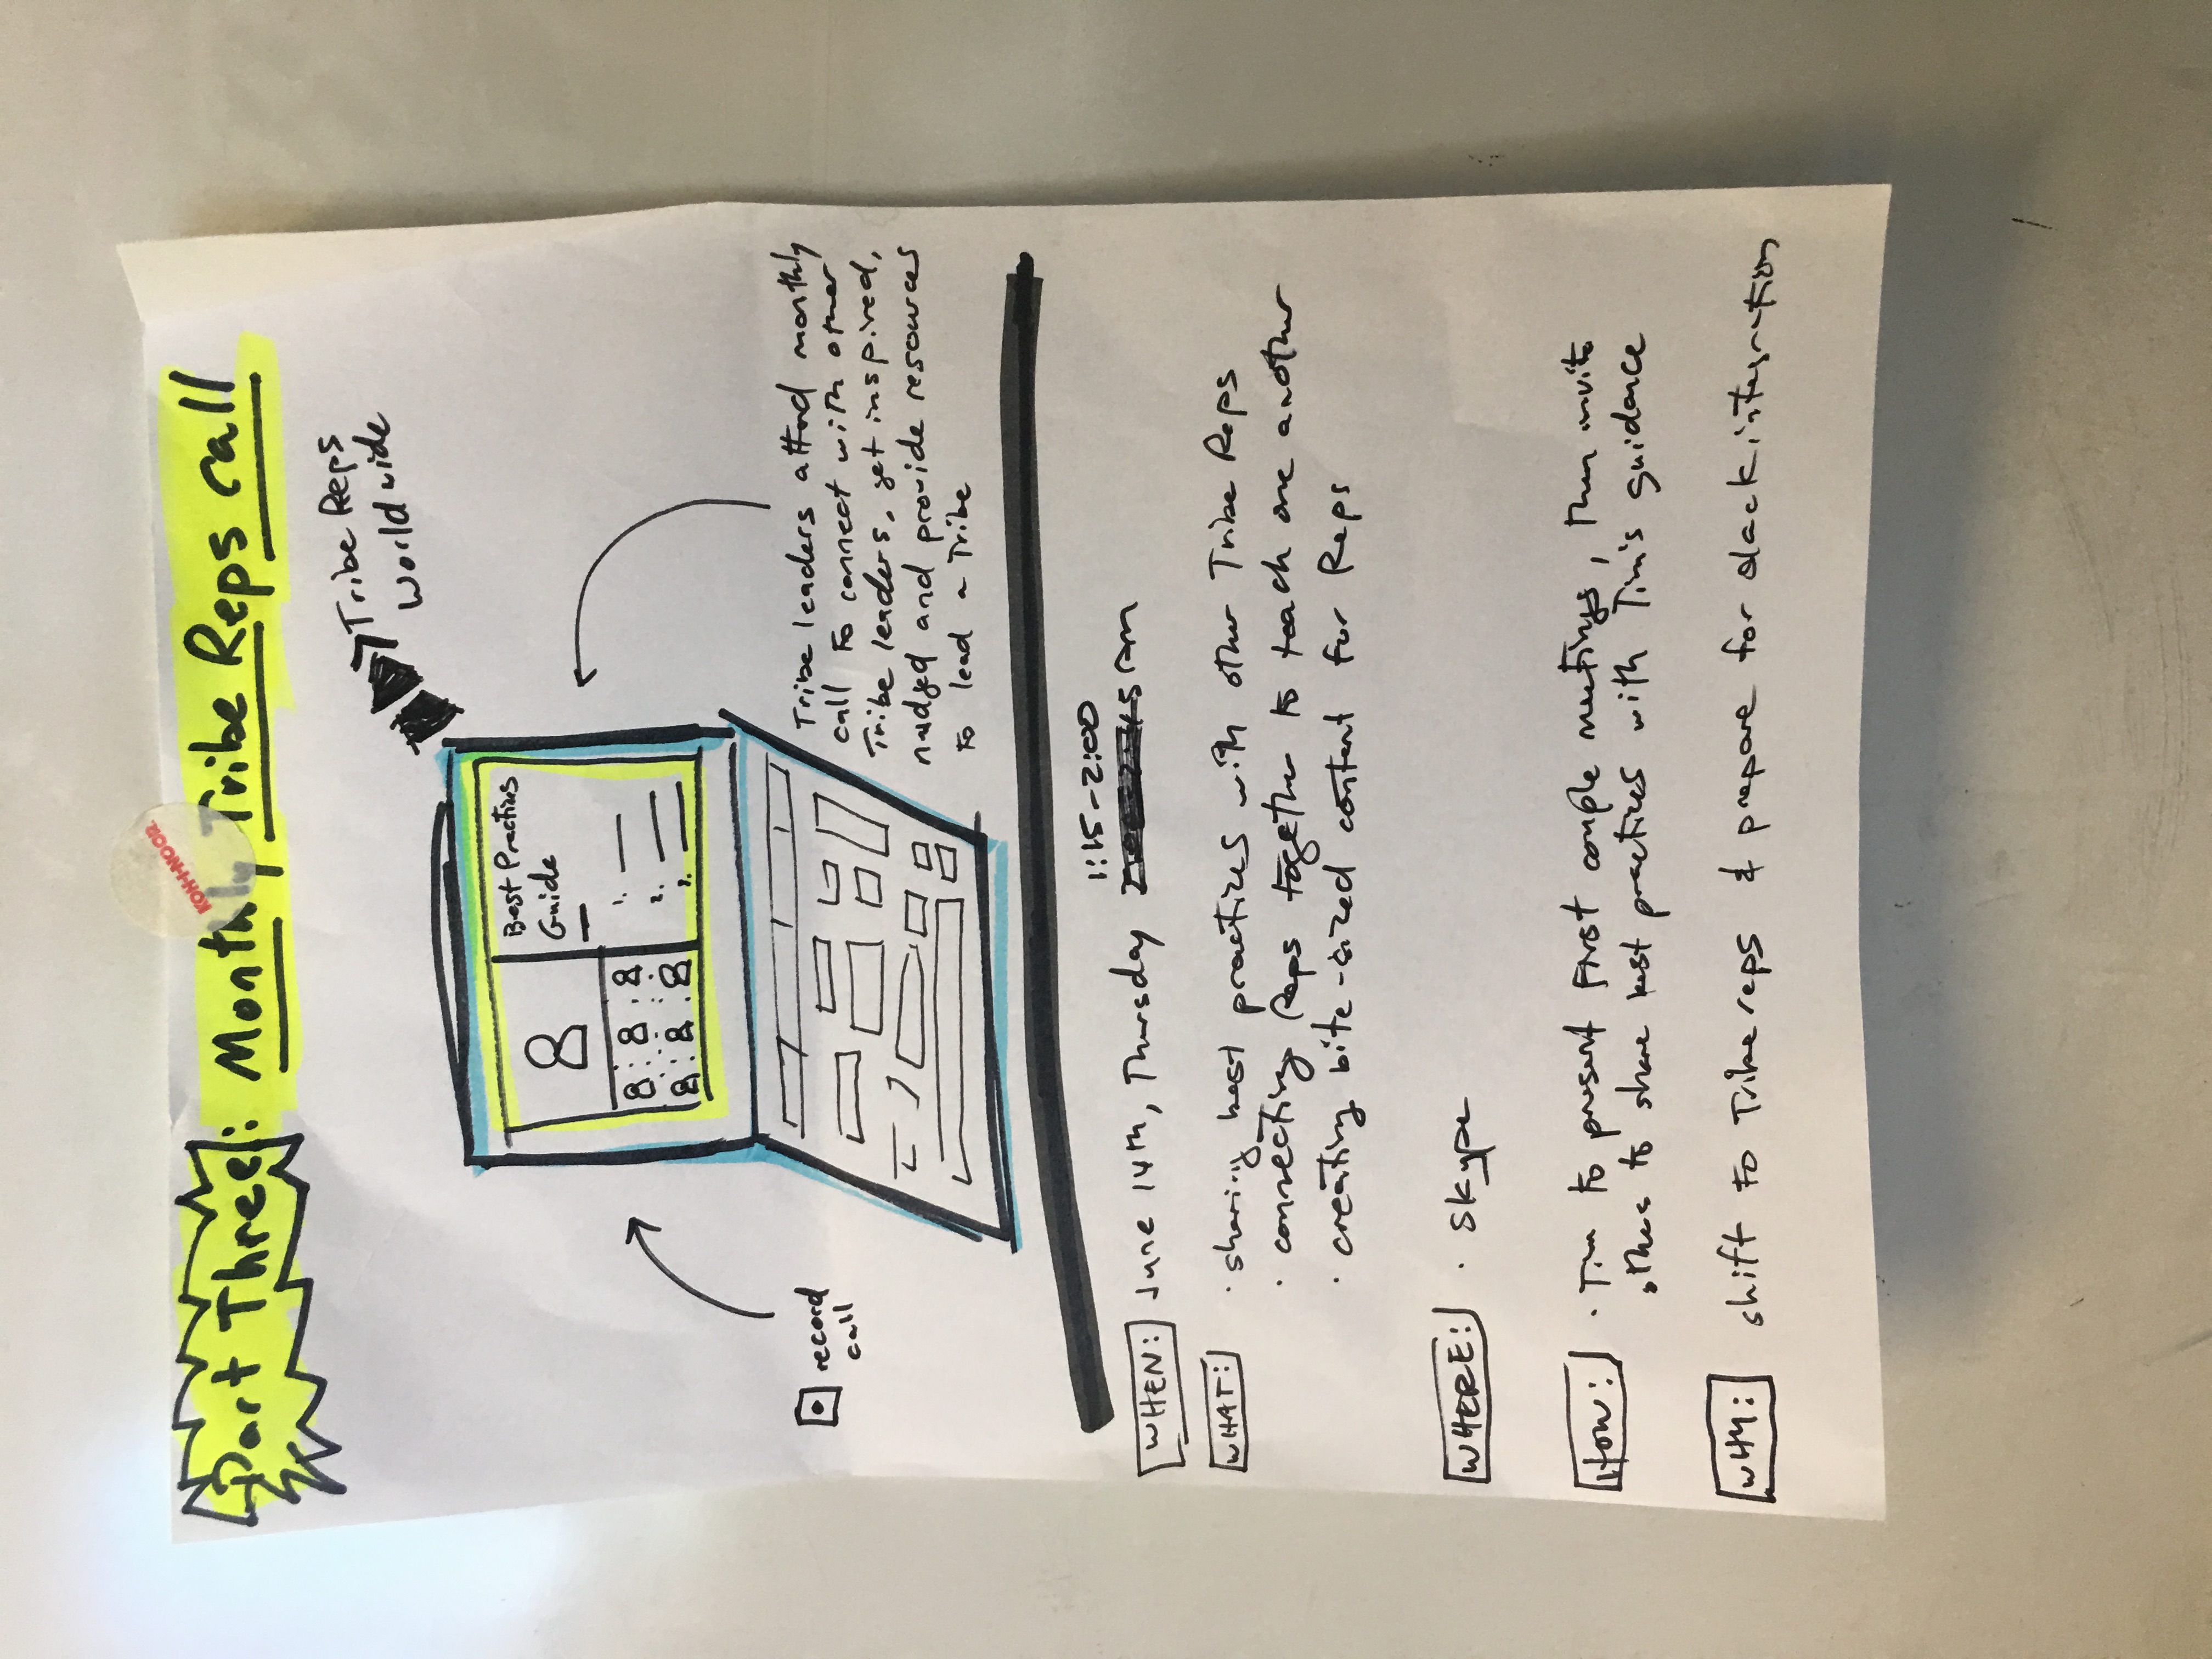 Part Three: Monthly Tribe Reps call
KOH-I-NOOR
Tribe Reps
Worldwide
Best Practices
Guide
1.
2.
3.
record
call
Tribe leaders attend monthly
call to connect with other
Tribe leaders, get inspired,
nudged and provide resources
to lead a Tribe
1:15-2:00
WHEN: June 14th, Thursday pm
WHAT: · sharing best practices with other Tribe Reps
· connecting Reps together to teach one another
· creating bite-sized content for Reps
WHERE: · Skype
HOW: · Tim to present first couple meetings, then invite
others to share best practices with Tim's guidance
WHY: shift to Tribe reps & prepare for slack integration